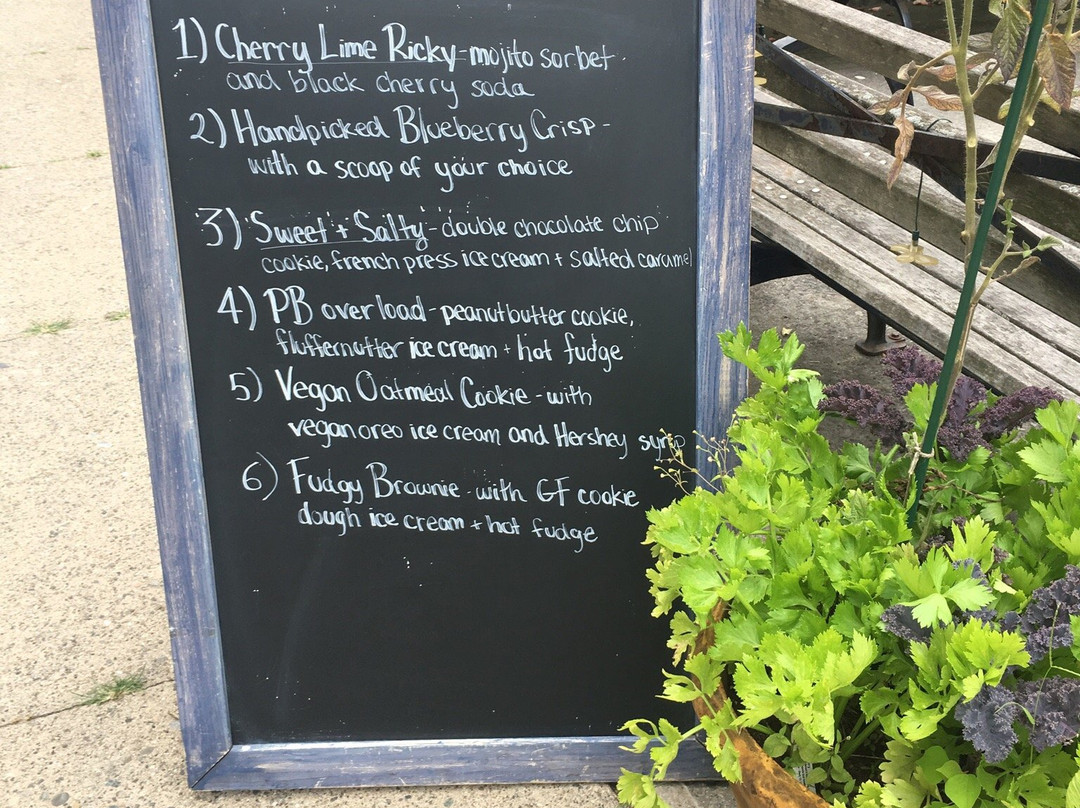 1) Cherry Lime Ricky - mojito sorbet
and black cherry soda
2) Handpicked Blueberry Crisp -
with a scoop of your choice
3) Sweet + Salty - double chocolate chip
cookie, french press ice cream + salted caramel
4) PB overload - peanut butter cookie,
fluffernutter ice cream + hot fudge
5) Vegan Oatmeal Cookie - with
vegan oreo ice cream and Hershey syrup
6) Fudgy Brownie - with GF cookie
dough ice cream + hot fudge